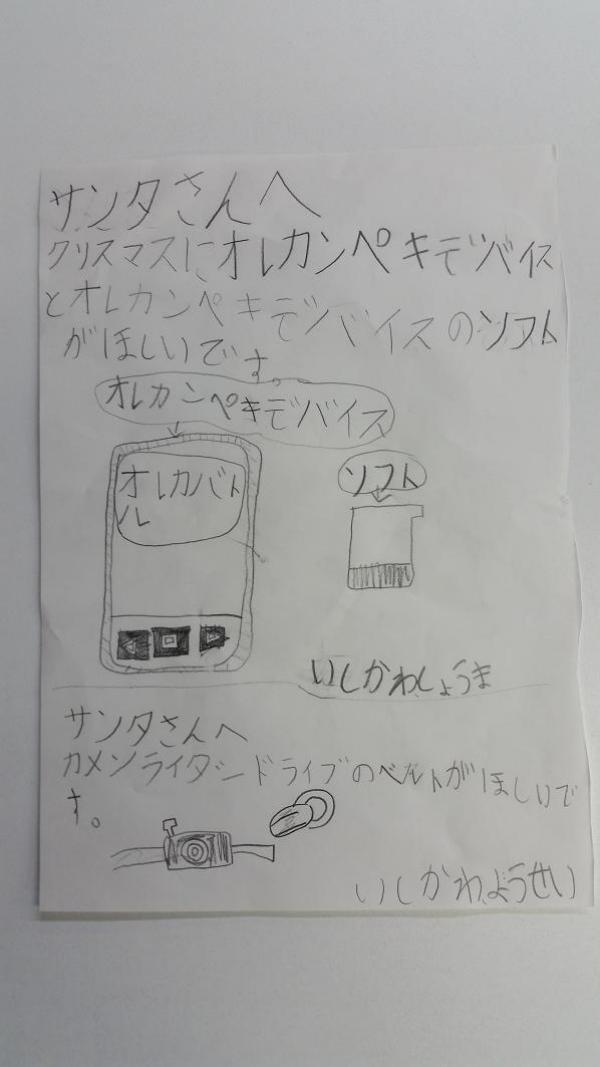 サンタさんへ
クリスマスにオレカンペキデバイス
とオレカンペキデバイスのソフト
がほしいです。
オレカンペキデバイス
ソフト
オレカバト
ル
いしかわしょうま
サンタさんへ
カメンライダードライブのベルトがほしいで
す。
いしかわようせい